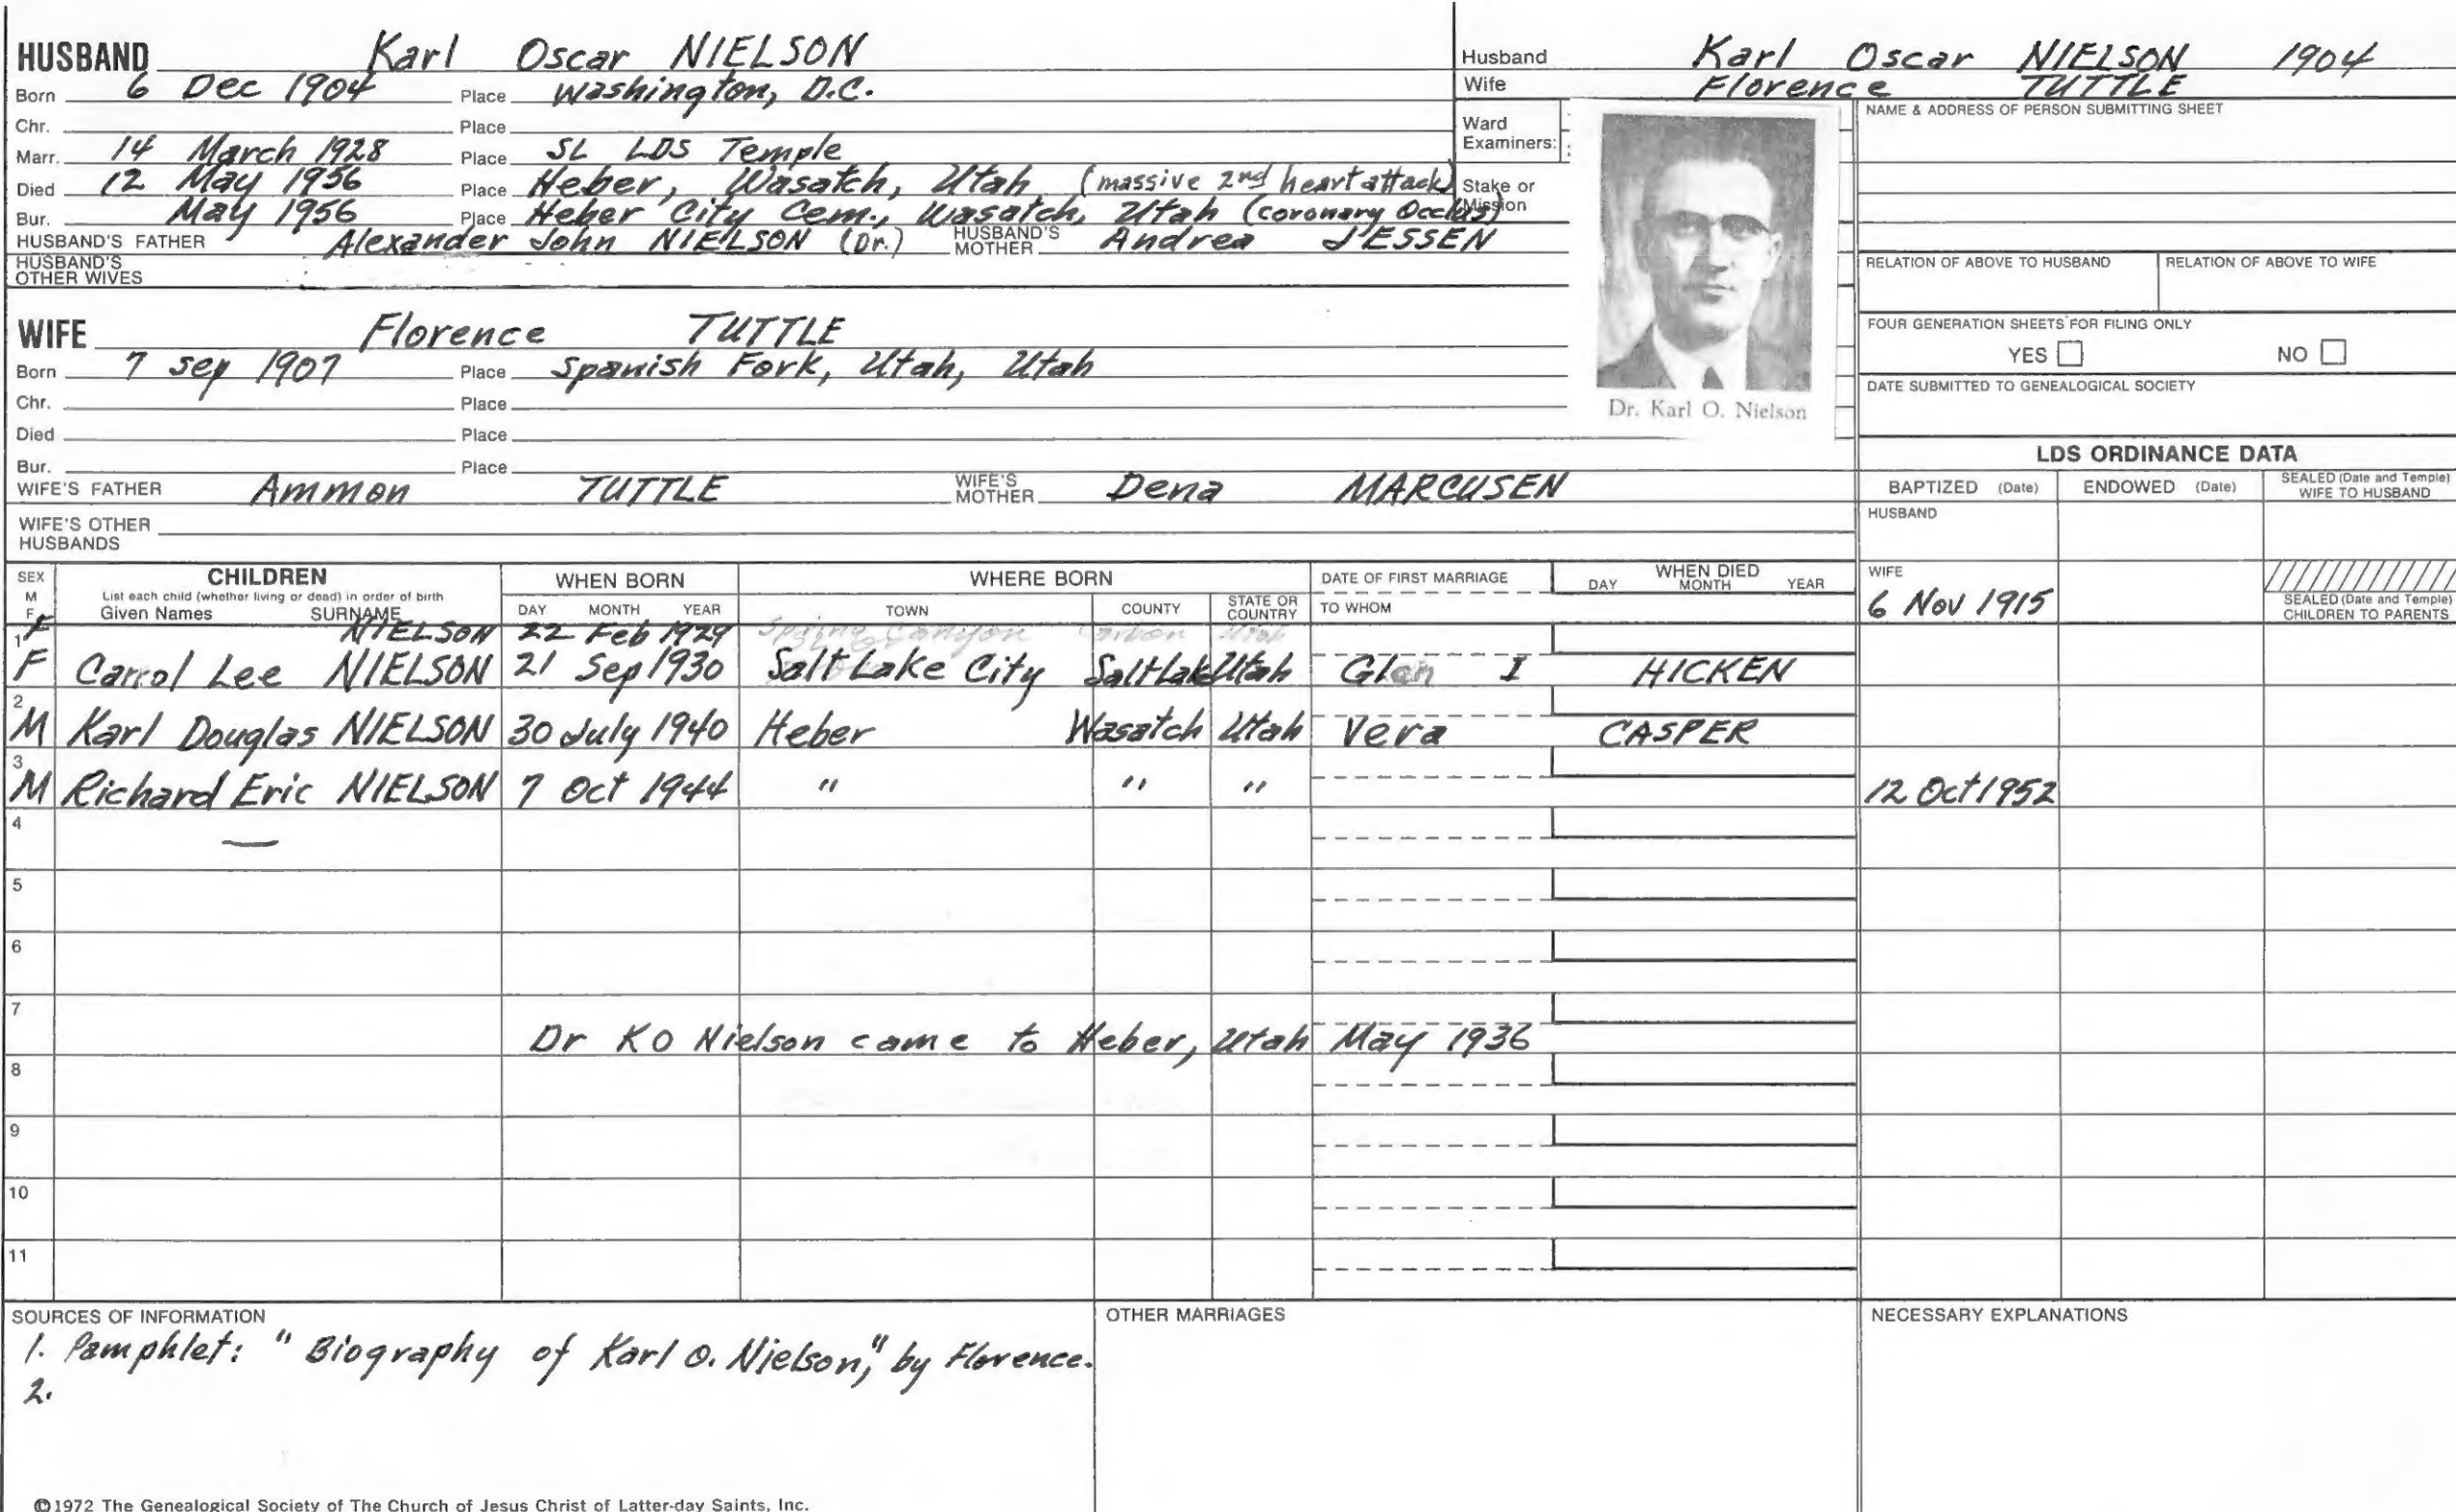 HUSBAND Karl Oscar NIELSON
Born 6 Dec 1904 Place Washington, D.C.
Chr. Place
Marr. 14 March 1928 Place SL LDS Temple
Died 12 May 1956 Place Heber, Wasatch, Utah (massive 2nd heart attack)
Bur. May 1956 Place Heber City Cem., Wasatch, Utah (coronary Occlus)
HUSBAND'S FATHER Alexander John NIELSON (Dr.) HUSBAND'S MOTHER Andrea JESSEN
HUSBAND'S OTHER WIVES
WIFE Florence TUTTLE
Born 7 Sep 1907 Place Spanish Fork, Utah, Utah
Chr. Place
Died Place
Bur. Place
WIFE'S FATHER Ammon TUTTLE WIFE'S MOTHER Dena MARCUSEN
WIFE'S OTHER HUSBANDS
Husband Karl Oscar NIELSON 1904
Wife Florence TUTTLE
Ward Examiners:
Stake or Mission
Dr. Karl O. Nielson
NAME & ADDRESS OF PERSON SUBMITTING SHEET
RELATION OF ABOVE TO HUSBAND RELATION OF ABOVE TO WIFE
FOUR GENERATION SHEETS FOR FILING ONLY
YES NO
DATE SUBMITTED TO GENEALOGICAL SOCIETY
LDS ORDINANCE DATA
BAPTIZED (Date) ENDOWED (Date) SEALED (Date and Temple) WIFE TO HUSBAND
HUSBAND
WIFE
6 Nov 1915
SEALED (Date and Temple) CHILDREN TO PARENTS
SEX M F CHILDREN WHEN BORN WHERE BORN DATE OF FIRST MARRIAGE WHEN DIED
List each child (whether living or dead) in order of birth
Given Names SURNAME DAY MONTH YEAR TOWN COUNTY STATE OR COUNTRY TO WHOM DAY MONTH YEAR
1 F NIELSON 22 Feb 1929 Spring Canyon Carbon Utah
F Carrol Lee NIELSON 21 Sep 1930 Salt Lake City Salt Lak Utah Glen I HICKEN
2 M Karl Douglas NIELSON 30 July 1940 Heber Wasatch Utah Vera CASPER
3 M Richard Eric NIELSON 7 Oct 1944 " " " 12 Oct 1952
4
5
6
7
Dr K O Nielson came to Heber, Utah May 1936
8
9
10
11
SOURCES OF INFORMATION
1. Pamphlet: "Biography of Karl O. Nielson," by Florence.
2.
OTHER MARRIAGES
NECESSARY EXPLANATIONS
©1972 The Genealogical Society of The Church of Jesus Christ of Latter-day Saints, Inc.